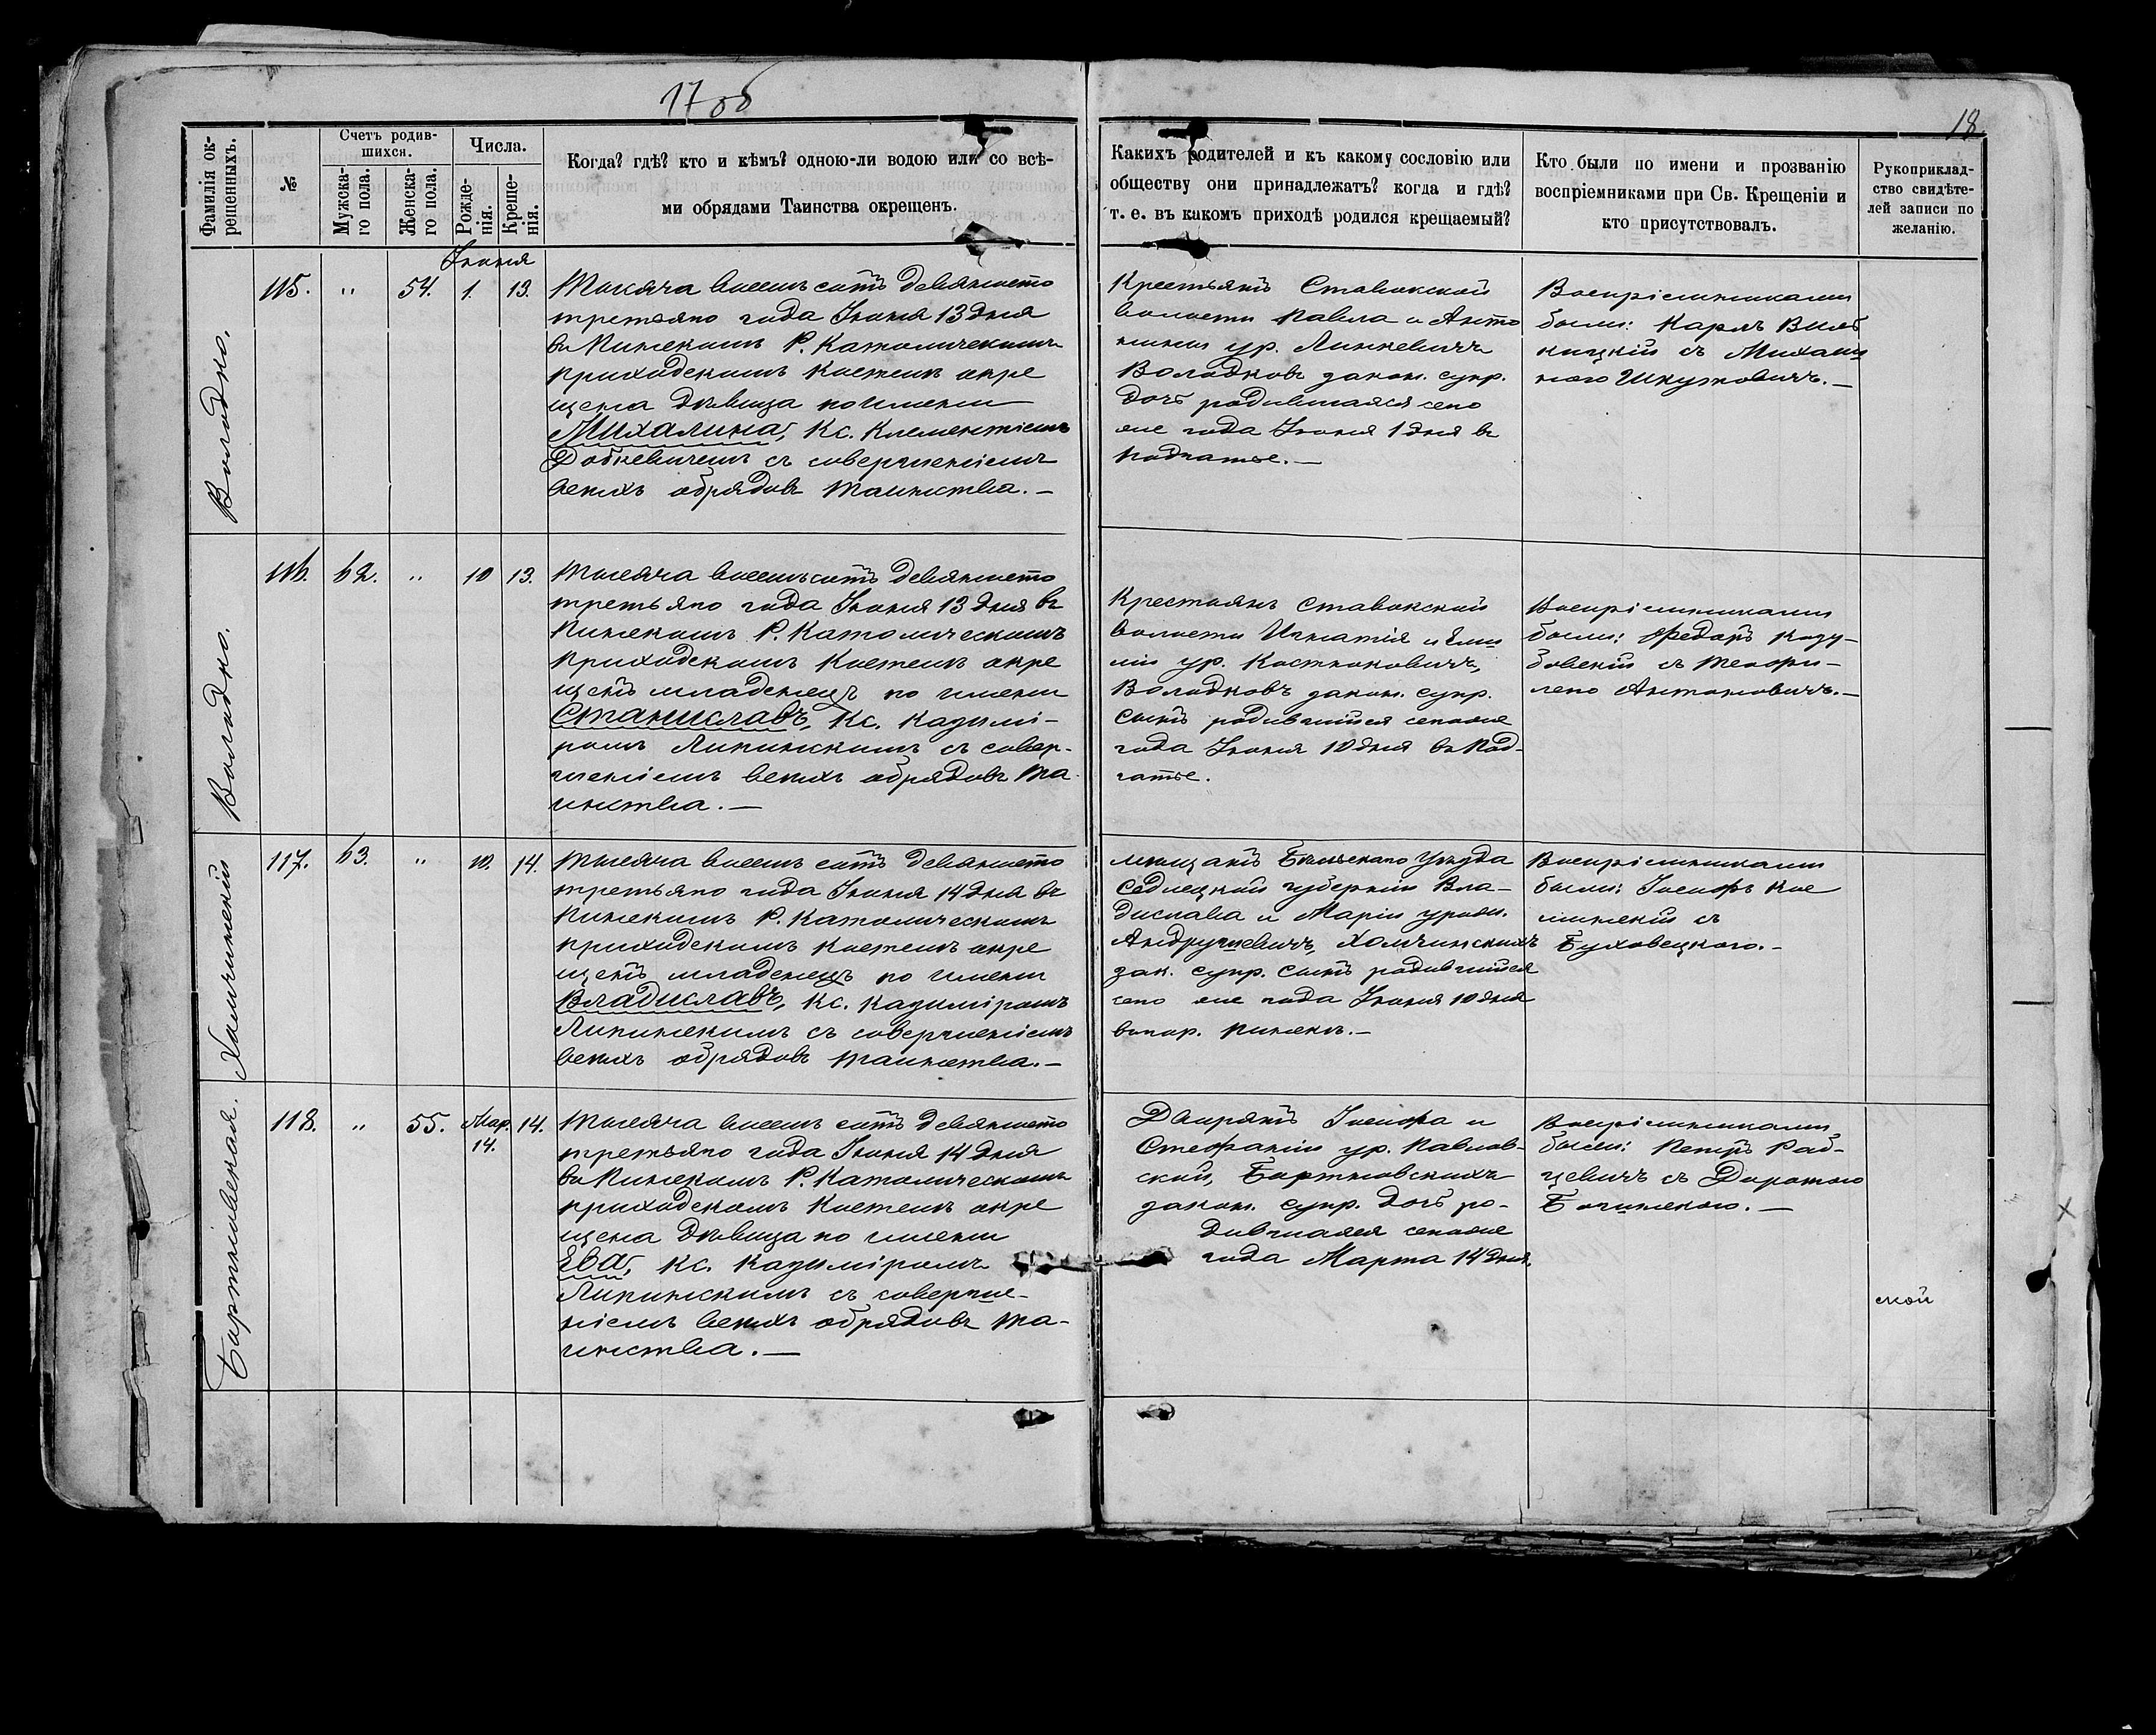 17 об
18.
Фамилія ок-
рещенныхъ.
№
Счетъ родив-
шихся.
Мужска-
го пола.
Женска-
го пола.
Числа.
Рожде-
нія.
Креще-
нія.
Когда? гдѣ? кто и кѣмъ? одною-ли водою или со всѣ-
ми обрядами Таинства окрещенъ.
Какихъ родителей и къ какому сословію или
обществу они принадлежатъ? когда и гдѣ?
т. е. въ какомъ приходѣ родился крещаемый?
Кто были по имени и прозванію
воспріемниками при Св. Крещеніи и
кто присутствовалъ.
Рукоприклад-
ство свидѣте-
лей записи по
желанію.
Іюня
Володко.
115. " 54. 1. 13.
Тысяча восемь сотъ девяносто
третьяго года Іюня 13 дня
въ Пинскомъ Р. Католическомъ
приходскомъ костелѣ окре
щена дѣвица по имени
Михалина, Кс. Клементіемъ
Добкевичемъ съ совершеніемъ
всѣхъ обрядовъ таинства. —
Крестьянъ Ставокской
волости Павла и Анто
нины ур. Линкевичъ
Володковъ закон. супр.
дочь родившаяся сего
же года Іюня 1 дня въ
Подгатье. —
Воспріемниками
были: Карлъ
съ Михали
ною Шкутовичъ. —
Володко.
116. 62. " 10 13.
Тысяча восемьсотъ девяносто
третьяго года Іюня 13 дня въ
Пинскомъ Р. Католическомъ
приходскомъ костелѣ окре
щенъ младенецъ по имени
Станиславъ, Кс. Казимі-
ромъ Липинскимъ съ совер-
шеніемъ всѣхъ обрядовъ та
инства. —
Крестьянъ Ставокской
волости Игнатія и Еми
ліи ур. Костюковичъ,
Володковъ закон. супр.
сынъ родившійся сегоже
года Іюня 10 дня въ Под-
гатье.
Воспріемниками
были: Федоръ Козу-
бовскій съ Теофи-
лею Антоновичъ. —
Холчинскій
117. 63. " 10. 14.
Тысяча восемь сотъ девяносто
третьяго года Іюня 14 дня въ
Пинскомъ Р. Католическомъ
приходскомъ костелѣ окре
щенъ младенецъ по имени
Владиславъ, Кс. Казиміромъ
Липинскимъ съ совершеніемъ
всѣхъ обрядовъ таинства. —
Мѣщанъ Бѣльскаго Уѣзда
Седлецкой губерніи Вла-
дислава и Маріи урожд.
Андрушевичъ, Холчинскихъ
зак. супр. сынъ родившійся
сего же года Іюня 10 дня
въ гор. Пинскѣ. —
Воспріемниками
были: Іосифъ
съ
Буховецкою. —
Бартновская.
118. " 55. Мар. 14. 14.
Тысяча восемь сотъ девяносто
третьяго года Іюня 14 дня
въ Пинскомъ Р. Католическомъ
приходскомъ костелѣ окре
щена дѣвица по имени
Ева, Кс. Казиміромъ
Липинскимъ съ соверше-
ніемъ всѣхъ обрядовъ та-
инства. —
Дворянъ Іосифа и
Стефаніи ур. Павлов-
ской, Бартновскихъ
закон. супр. дочь ро-
дившаяся сегоже
года Марта 14 дня.
Воспріемниками
были: Петръ Раб-
цевичъ съ Доротою
ской